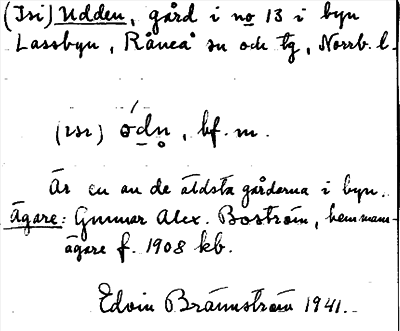 (Isi) Udden, gård i no 13 i byn
Lassbyn, Råneå sn och tg, Norrb. l.
(isi) ódn, bf. m.
Är en av de äldsta gårdarna i byn.
Ägare: Gunnar Alex. Boström, hemmans-
ägare f. 1908 kb.
Edvin Brännström 1941.